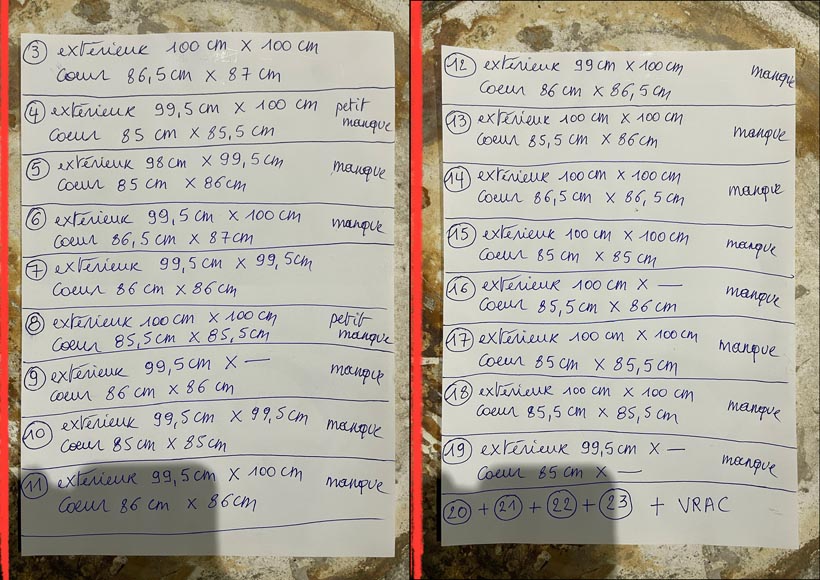 ③ extérieur 100 cm X 100 cm
Coeur 86,5 cm X 87 cm
④ extérieur 99,5 cm X 100 cm petit manque
Coeur 85 cm X 85,5 cm
⑤ extérieur 98 cm X 99,5 cm manque
Coeur 85 cm X 86 cm
⑥ extérieur 99,5 cm X 100 cm manque
Coeur 86,5 cm X 87 cm
⑦ extérieur 99,5 cm X 99,5 cm
Coeur 86 cm X 86 cm
⑧ extérieur 100 cm X 100 cm petit manque
Coeur 85,5 cm X 85,5 cm
⑨ extérieur 99,5 cm X — manque
Coeur 86 cm X 86 cm
⑩ extérieur 99,5 cm X 99,5 cm manque
Coeur 85 cm X 85 cm
⑪ extérieur 99,5 cm X 100 cm manque
Coeur 86 cm X 86 cm
⑫ extérieur 99 cm X 100 cm manque
Coeur 86 cm X 86,5 cm
⑬ extérieur 100 cm X 100 cm manque
Coeur 85,5 cm X 86 cm
⑭ extérieur 100 cm X 100 cm manque
Coeur 86,5 cm X 86,5 cm
⑮ extérieur 100 cm X 100 cm manque
Coeur 85 cm X 85 cm
⑯ extérieur 100 cm X — manque
Coeur 85,5 cm X 86 cm
⑰ extérieur 100 cm X 100 cm manque
Coeur 85 cm X 85,5 cm
⑱ extérieur 100 cm X 100 cm manque
Coeur 85,5 cm X 85,5 cm
⑲ extérieur 99,5 cm X — manque
Coeur 85 cm X —
⑳ + ㉑ + ㉒ + ㉓ + VRAC